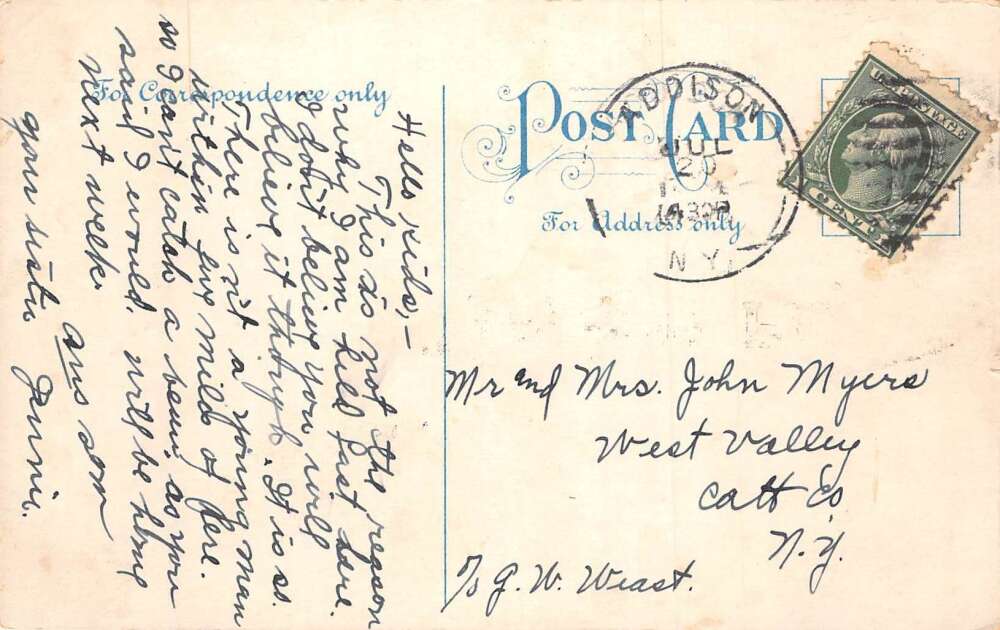 For Correspondence only
POST CARD
For Address only
ADDISON
JUL
20
N.Y.
Hello Kids,-
This is not the reason
why I am held fast here.
I don't believe you will
believe it though. It is so.
There isn't a young man
within five miles of here.
so I can't catch a beau, as you
said I would. will be home
next week.
ans soon
your sister Jennie.
Mr and Mrs. John Myers
West Valley
Catt Co
N.Y.
% G. W. Weast.